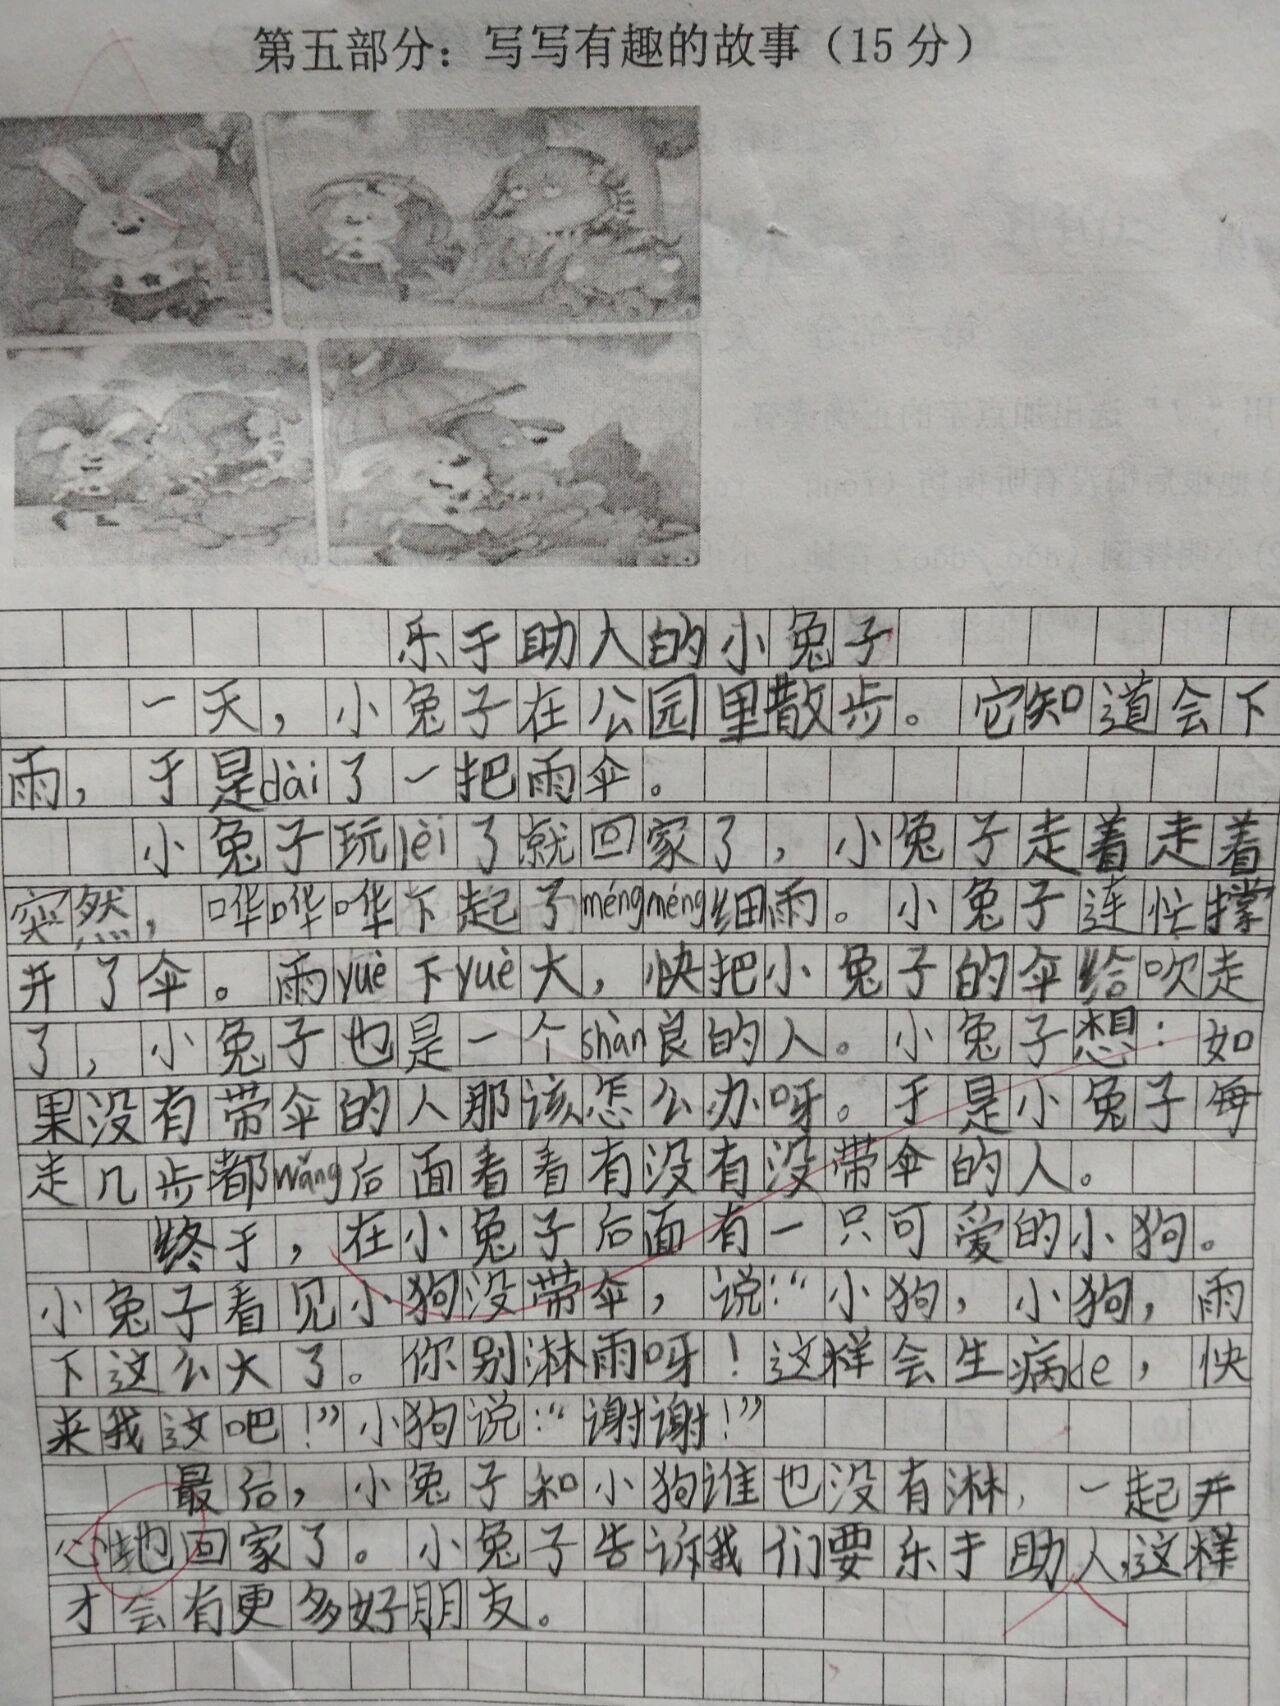 第五部分：写写有趣的故事（15分）
乐于助人的小兔子
一天，小兔子在公园里散步。它知道会下
雨，于是dài了一把雨伞。
小兔子玩lèi了就回家了，小兔子走着走着
突然，哗哗哗下起了méngméng细雨。小兔子连忙撑
开了伞。雨yuè下yuè大，快把小兔子的伞给吹走
了，小兔子也是一个shàn良的人。小兔子想：如
果没有带伞的人那该怎么办呀。于是小兔子每
走几步都wǎng后面看看有没有没带伞的人。
终于，在小兔子后面有一只可爱的小狗。
小兔子看见小狗没带伞，说：“小狗，小狗，雨
下这么大了。你别淋雨呀！这样会生病de，快
来我这吧！”小狗说：“谢谢！”
最后，小兔子和小狗谁也没有淋，一起开
心地回家了。小兔子告诉我们要乐于助人，这样
才会有更多好朋友。